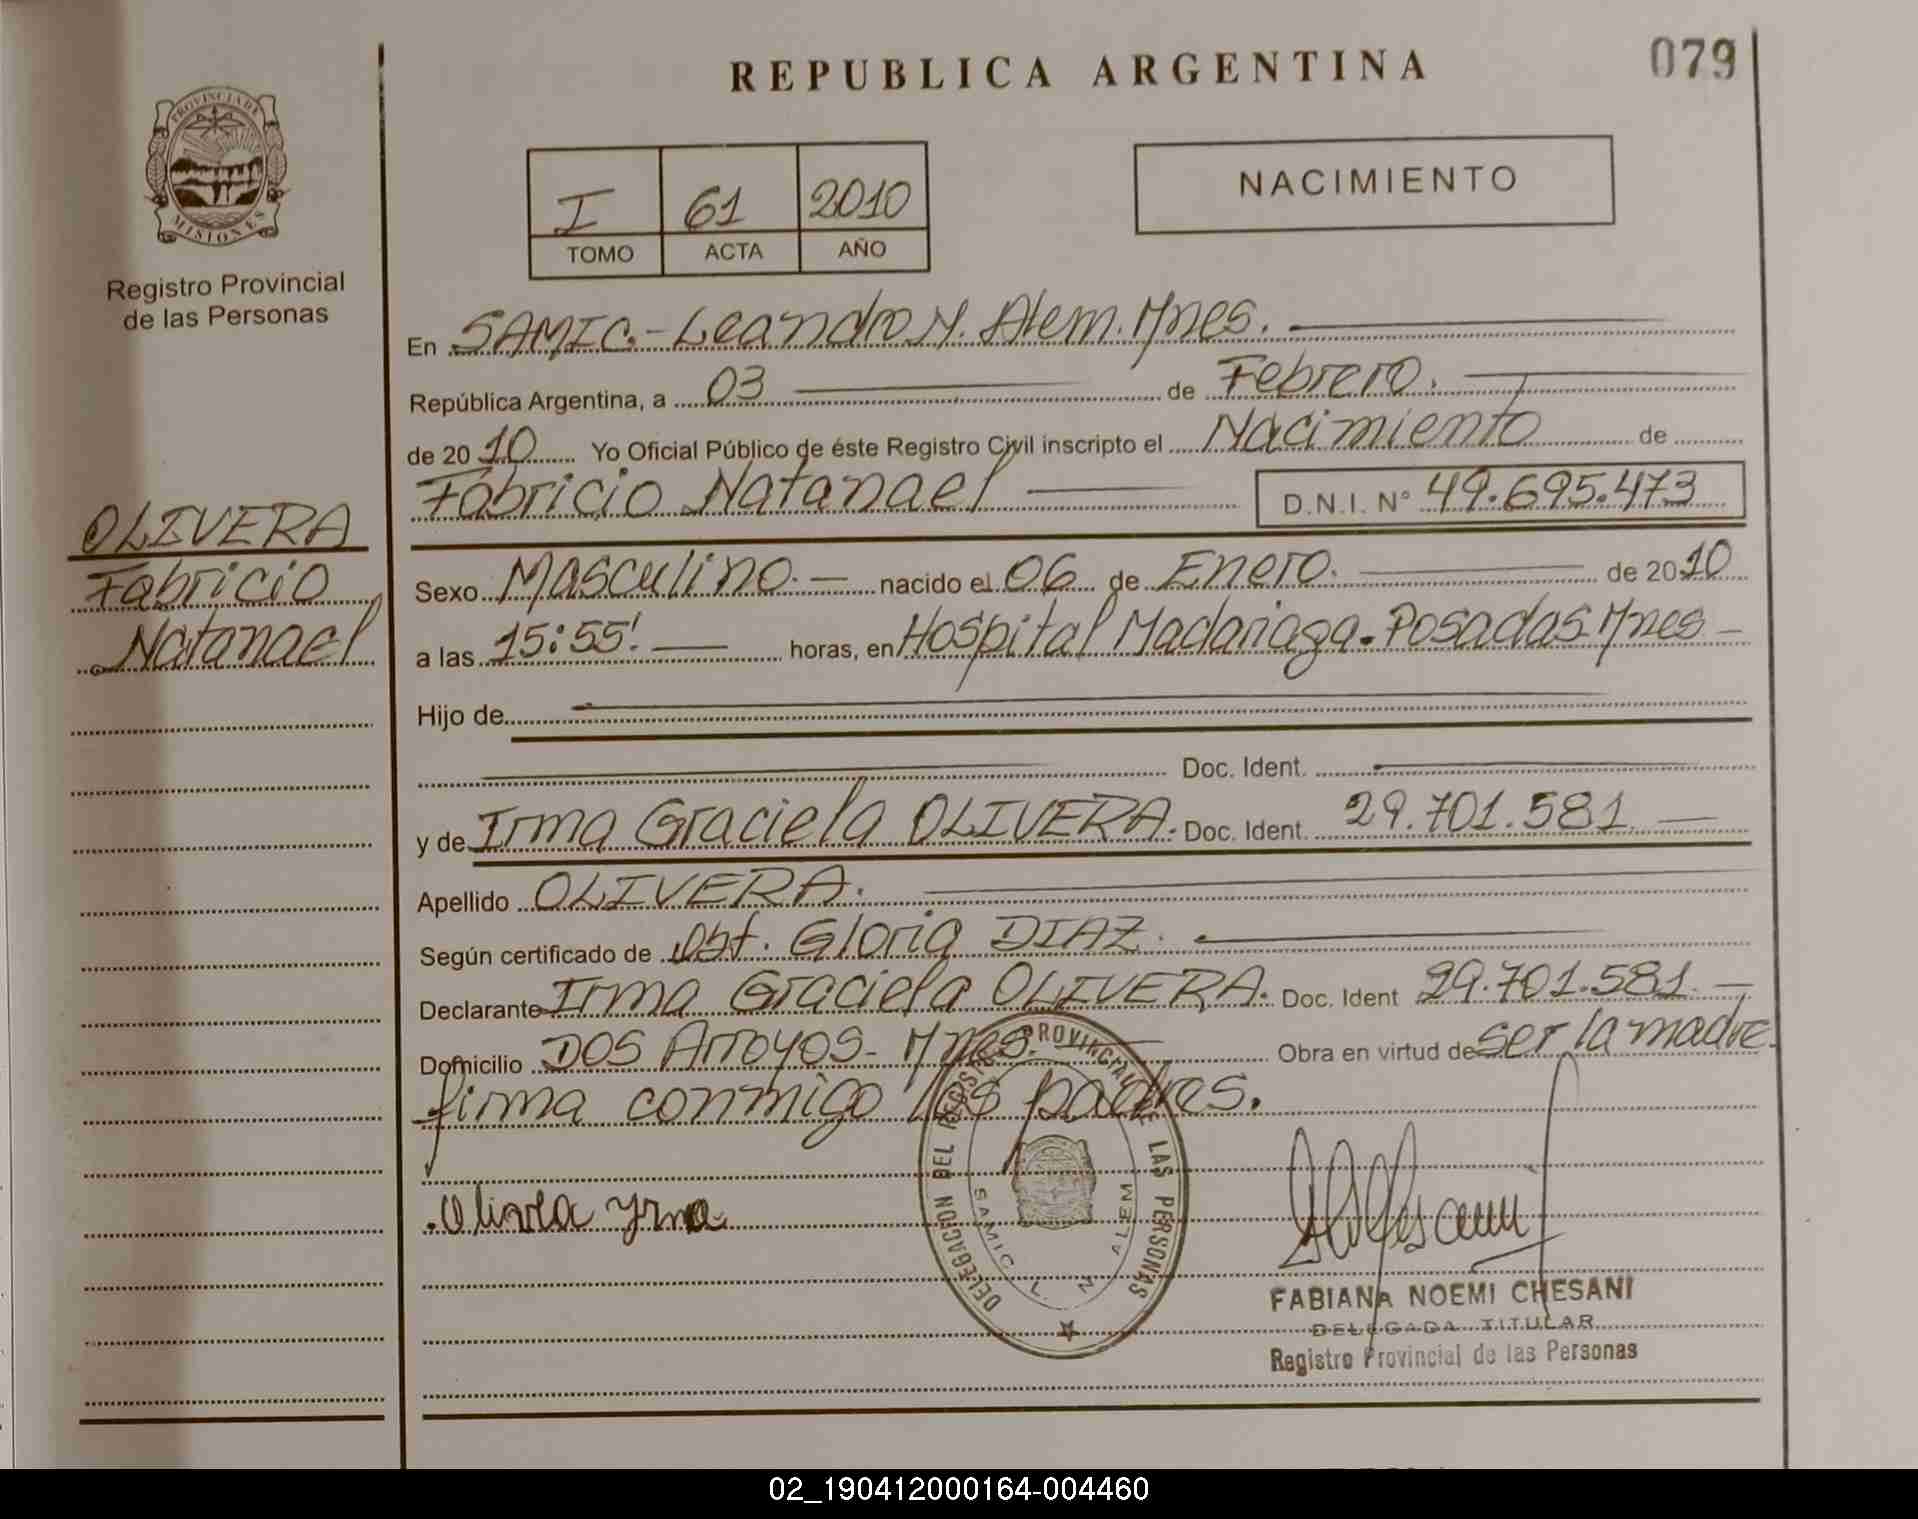 REPUBLICA ARGENTINA
079
PROVINCIA DE
MISIONES
Registro Provincial
de las Personas
I 61 2010
TOMO ACTA AÑO
NACIMIENTO
En SAMIC.- Leandro N. Alem. Mnes.
República Argentina, a 03 de Febrero.
de 2010 Yo Oficial Público de éste Registro Civil inscripto el Nacimiento de
Fabricio Natanael D.N.I. N° 49.695.473
OLIVERA
Fabricio
Natanael
Sexo Masculino. nacido el 06 de Enero. de 2010
a las 15:55! horas, en Hospital Madariaga. Posadas Mnes
Hijo de
Doc. Ident.
y de Irma Graciela OLIVERA. Doc. Ident. 29.701.581
Apellido OLIVERA.
Según certificado de Obst. Gloria DIAZ.
Declarante Irma Graciela OLIVERA. Doc. Ident 29.701.581.
Domicilio DOS Arroyos- Mnes. Obra en virtud de ser la madre.
firma conmigo los padres.
Olivera Yrma
DELEGACION DEL REGISTRO PROVINCIAL DE LAS PERSONAS
SAMIC L. N ALEM
FABIANA NOEMI CHESANI
DELEGADA TITULAR
Registro Provincial de las Personas
02_190412000164-004460